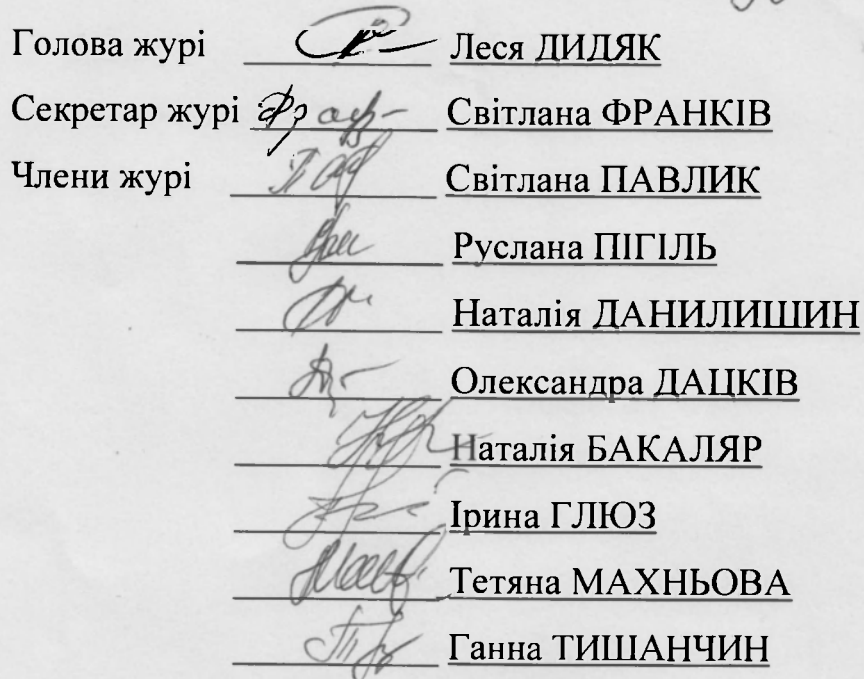 Голова журі Леся ДИДЯК
Секретар журі Світлана ФРАНКІВ
Члени журі Світлана ПАВЛИК
Руслана ПІГІЛЬ
Наталія ДАНИЛИШИН
Олександра ДАЦКІВ
Наталія БАКАЛЯР
Ірина ГЛЮЗ
Тетяна МАХНЬОВА
Ганна ТИШАНЧИН